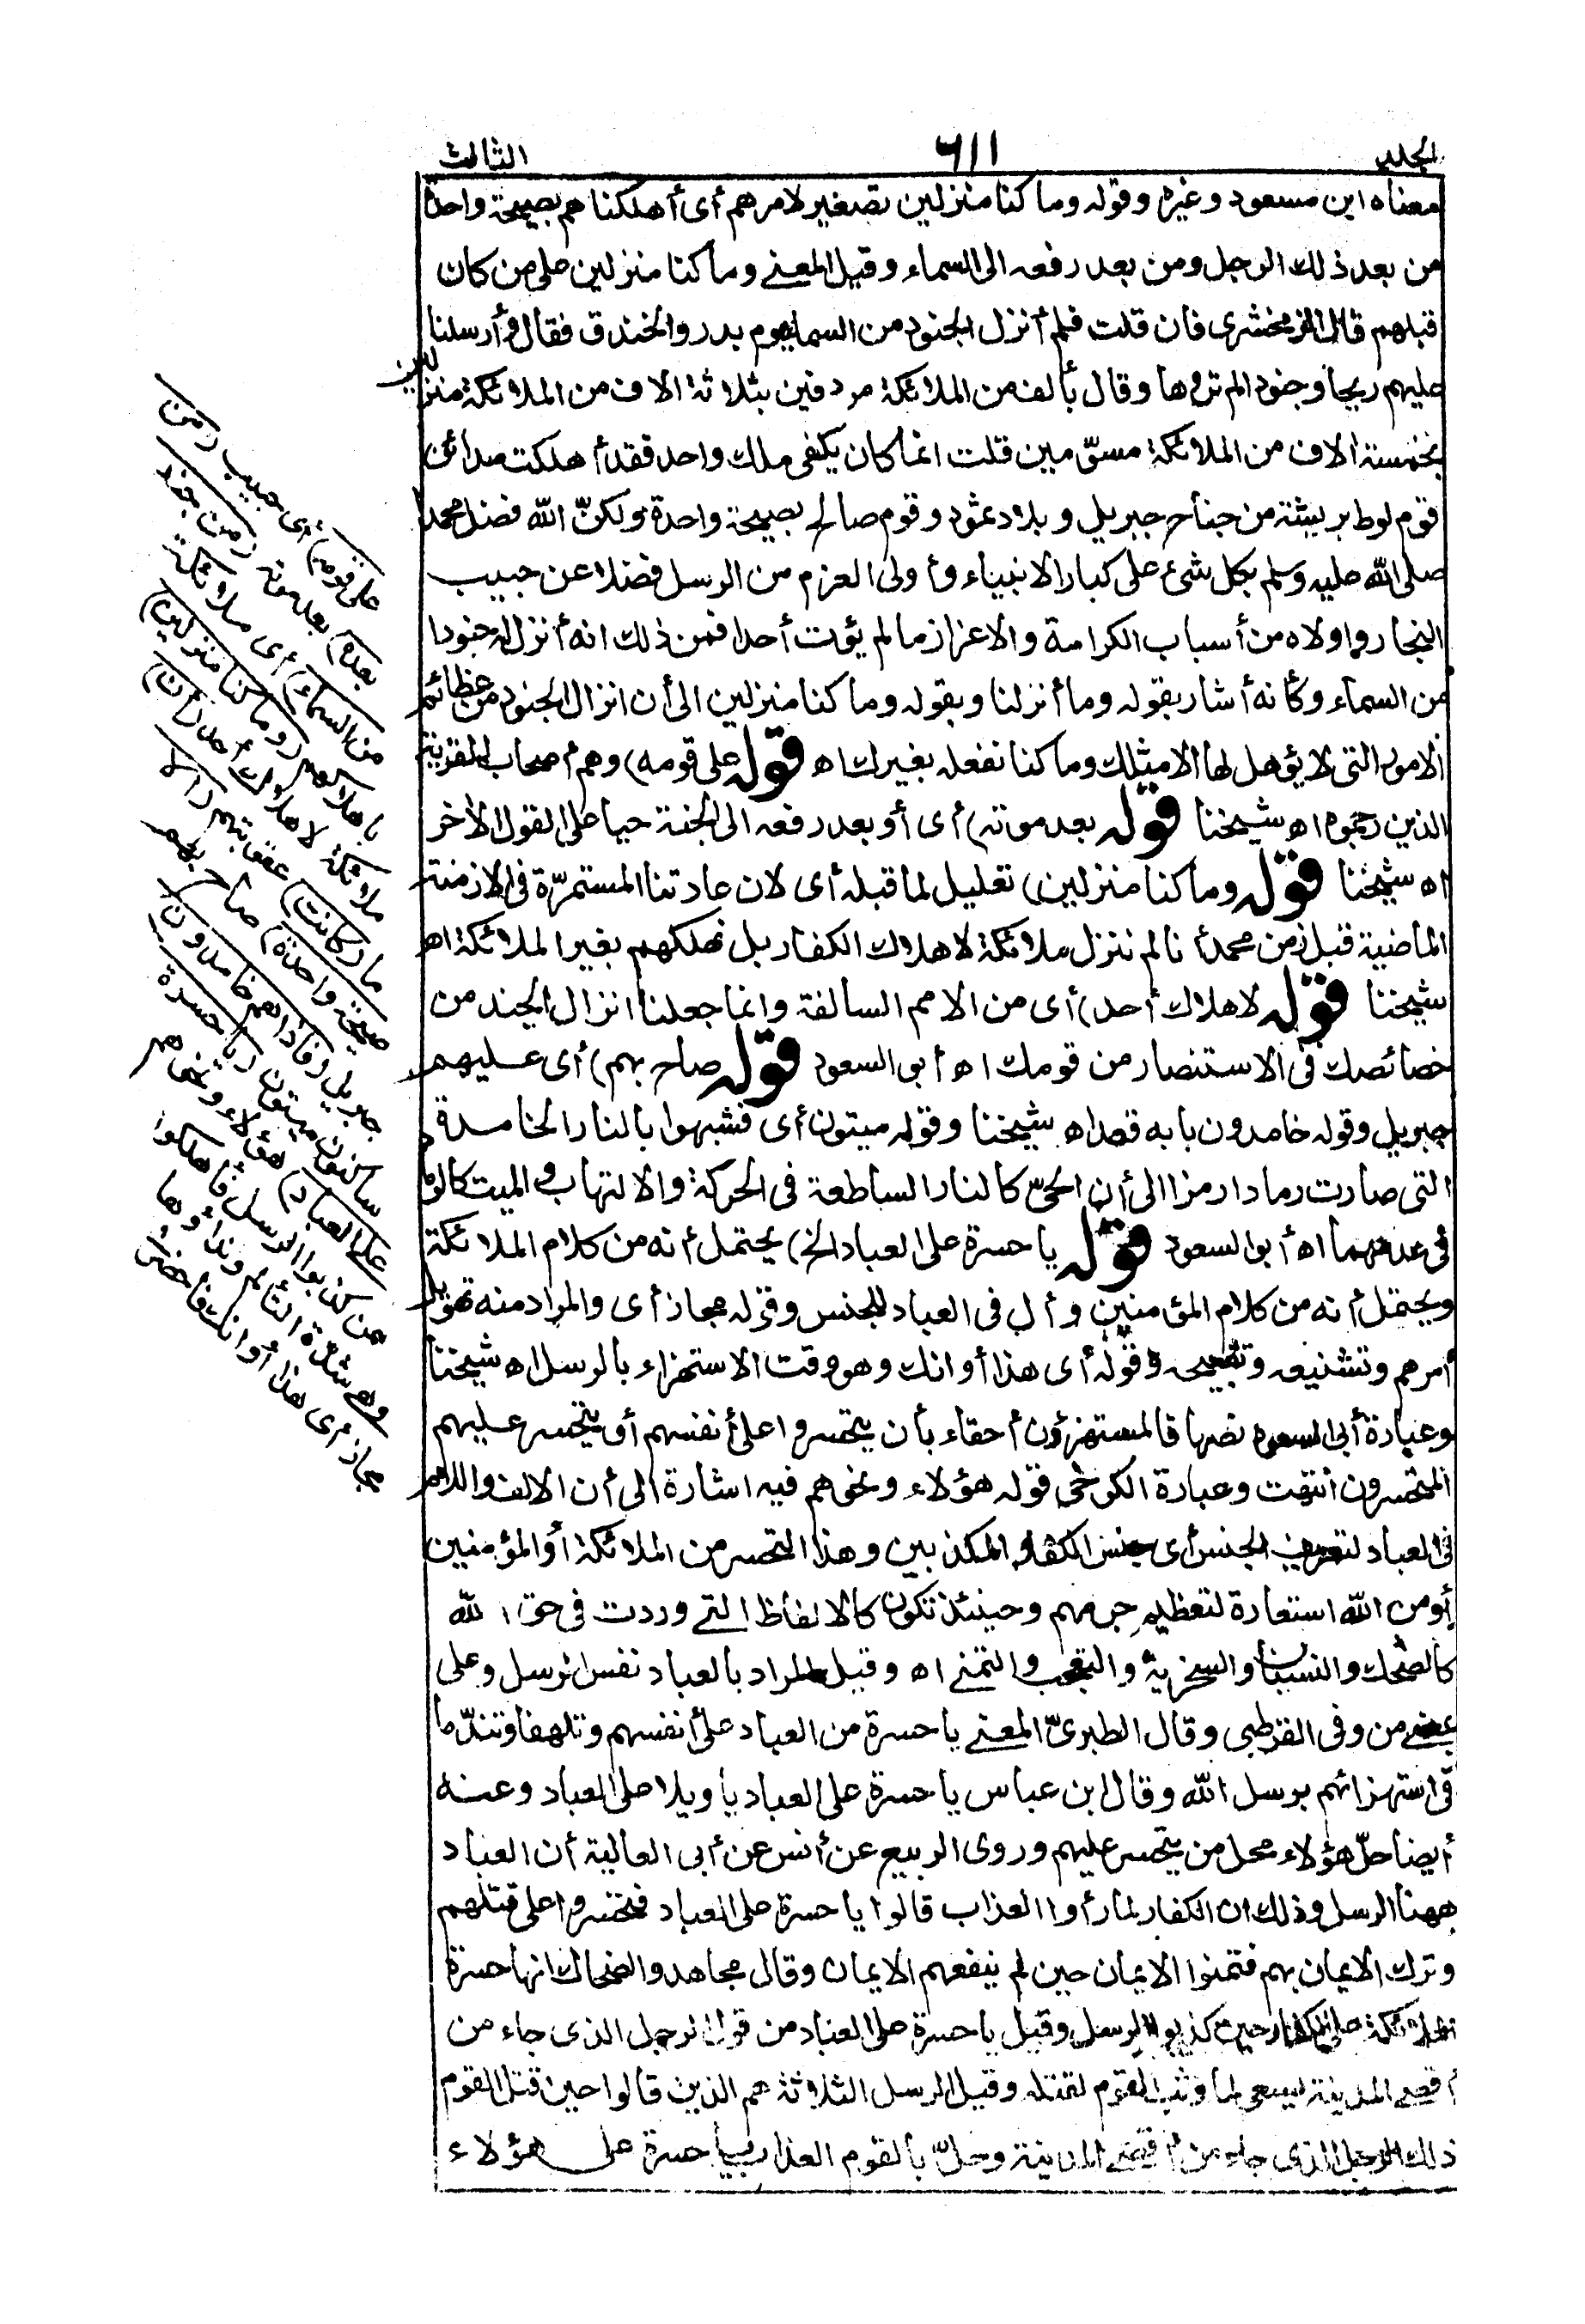 الجلد ٦١١ الثالث
معناه ابن مسعود وغيره وقوله وما كنا منزلين تصغير لامرهم أى أهلكناهم بصيحة واحدة
من بعد ذلك الرجل ومن بعد رفعه الى السماء وقيل المعنى وما كنا منزلين على من كان
قبلهم قال الزمخشرى فان قلت فلم أنزل الجنود من السماء يوم بدر والخندق فقال فأرسلنا
عليهم ريحا وجنودا لم تروها وقال بألف من الملائكة مردفين بثلاثة الاف من الملائكة منزلين
بخمسة الاف من الملائكة مسوّمين قلت انما كان يكفى ملك واحد فقد أهلكت مدائن
قوم لوط بريشة من جناح جبريل وبلاد ثمود وقوم صالح بصيحة واحدة ولكنّ الله فضل محمدا
صلى الله عليه وسلم بكل شئ على كبار الانبياء وأولى العزم من الرسل فضلا عن حبيب
النجار وأولاه من أسباب الكرامة والاعزاز ما لم يؤت أحدا فمن ذلك انه أنزل له جنودا
من السماء وكأنه أشار بقوله وما أنزلنا وبقوله وما كنا منزلين الى أن انزال الجنود من عظائم
الامور التى لا يؤهل لها الا مثلك وما كنا نفعله بغيرك اه قوله على قومه) وهم أصحاب القرية
الذين رجموه اه شيخنا قوله بعد موته) أى أو بعد رفعه الى الجنة حيا على القول الأخر
اه شيخنا قوله وما كنا منزلين) تعليل لما قبله أى لان عادتنا المستمرّة فى الازمنة
الماضية قبل زمن محمد أنا لم ننزل ملائكة لاهلاك الكفار بل نهلكهم بغير الملائكة اه
شيخنا قوله لاهلاك أحد) أى من الامم السالفة وانما جعلنا انزال الجند من
خصائصك فى الاستنصار من قومك اه أبو السعود قوله صاح بهم) أى عليهم
جبريل وقوله خامدون بابه قعد اه شيخنا وقوله ميتون أى فشبهوا بالنار الخامدة
التى صارت رمادا رمزا الى أن الحىّ كالنار الساطعة فى الحركة والالتهاب والميت كالرماد
فى عدمهما اه أبو السعود قوله يا حسرة على العباد الخ) يحتمل أنه من كلام الملائكة
ويحتمل أنه من كلام المؤمنين وأل فى العباد للجنس وقوله مجاز أى والمراد منه تهويل
أمرهم وتشنيعه وتقبيحه وقوله أى هذا أوانك وهو وقت الاستهزاء بالرسل اه شيخنا
وعبارة أبى السعود نصها فالمستهزؤن أحقاء بأن يتحسروا على أنفسهم أو يتحسر عليهم
المتحسرون انتهت وعبارة الكرخى قوله هؤلاء ونحوهم فيه اشارة الى أن الالف واللام
فى العباد لتعريف الجنس أى جنس الكفار المكذبين وهذا التحسر من الملائكة أو المؤمنين
أو من الله استعارة لتعظيم جرمهم وحينئذ تكون كالالفاظ التى وردت فى حق الله
كالضحك والنسيان والسخرية والتعجب والتمنى اه وقيل المراد بالعباد نفس الرسل وعلى
بمعنى من وفى القرطبى وقال الطبرىّ المعنى يا حسرة من العباد على أنفسهم وتلهفا وتندّما
فى استهزائهم برسل الله وقال ابن عباس يا حسرة على العباد يا ويلا على العباد وعنه
أيضا حلّ هؤلاء محل من يتحسر عليهم وروى الربيع عن أنس عن أبى العالية أن العباد
ههنا الرسل وذلك ان الكفار لما رأوا العذاب قالوا يا حسرة على العباد فتحسروا على قتلهم
وترك الايمان بهم فتمنوا الايمان حين لم ينفعهم الايمان وقال مجاهد والضحاك انها حسرة
الملائكة على الكفار حين كذبوا الرسل وقيل يا حسرة على العباد من قول الرجل الذى جاء من
أقصى المدينة يسعى لما وثب القوم لقتله وقيل الرسل الثلاثة هم الذين قالوا حين قتل القوم
ذلك الرجل الذى جاء من أقصى المدينة وحلّ بالقوم العذاب يا حسرة على هؤلاء
على قومه) أى حبيب (من
بعده) بعد موته (من جند
من السماء) أى ملائكة
باهلاكهم (وما كنا منزلين)
ملائكة لاهلاك أحد (ان)
ما (كانت) عقوبتهم (الا
صيحة واحدة) صاح بهم
جبريل (فاذا هم خامدون)
ساكتون ميتون (يا حسرة
على العباد) هؤلاء ونحوهم
من كذبوا الرسل فأهلكوا
وهى شدة التألم ونداؤها
مجاز أى هذا أوانك فاحضرى